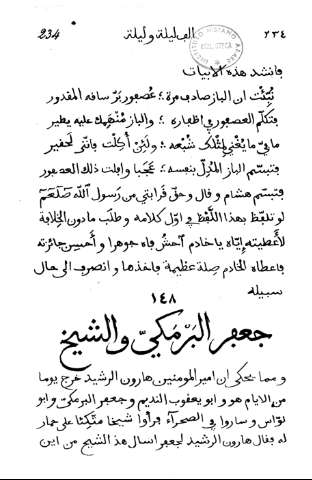 ٢٣٤ الف ليلة وليلة 234
فانشد هذه الابيات
نُبِّئْت ان الباز صادف مرة ؛ عصفور بَرّ ساقه المقدور
فتكلّم العصفور في اظفاره ؛ والباز منهمك عليه يطير
ما فيّ ما يُغني لمثلك شبعه ؛ ولئن أُكلت فانني لحقير
فتبسم الباز المدلّ بنفسه ؛ عجبا وافلت ذلك العصفور
فتبسم هشام وقال وحق قرابتي من رسول الله صلعم
لو تلفظ بهذا اللفظ في اول كلامه وطلب ما دون الخلافة
لأعطيته إيّاه يا خادم أحش فاه جوهرا وأحسن جائزته
فاعطاه الخادم صلة عظيمة فاخذها وانصرف الى حال
سبيله
١٤٨
جعفر البرمكيّ والشيخ
ومما يحكى ان امير المومنين هارون الرشيد خرج يوما
من الايام هو وابو يعقوب النديم وجعفر البرمكيّ وابو
نوّاس وساروا في الصحرآء فرأوا شيخا متّكئا على حمار
له فقال هارون الرشيد لجعفر اسال هذ الشيخ من اين